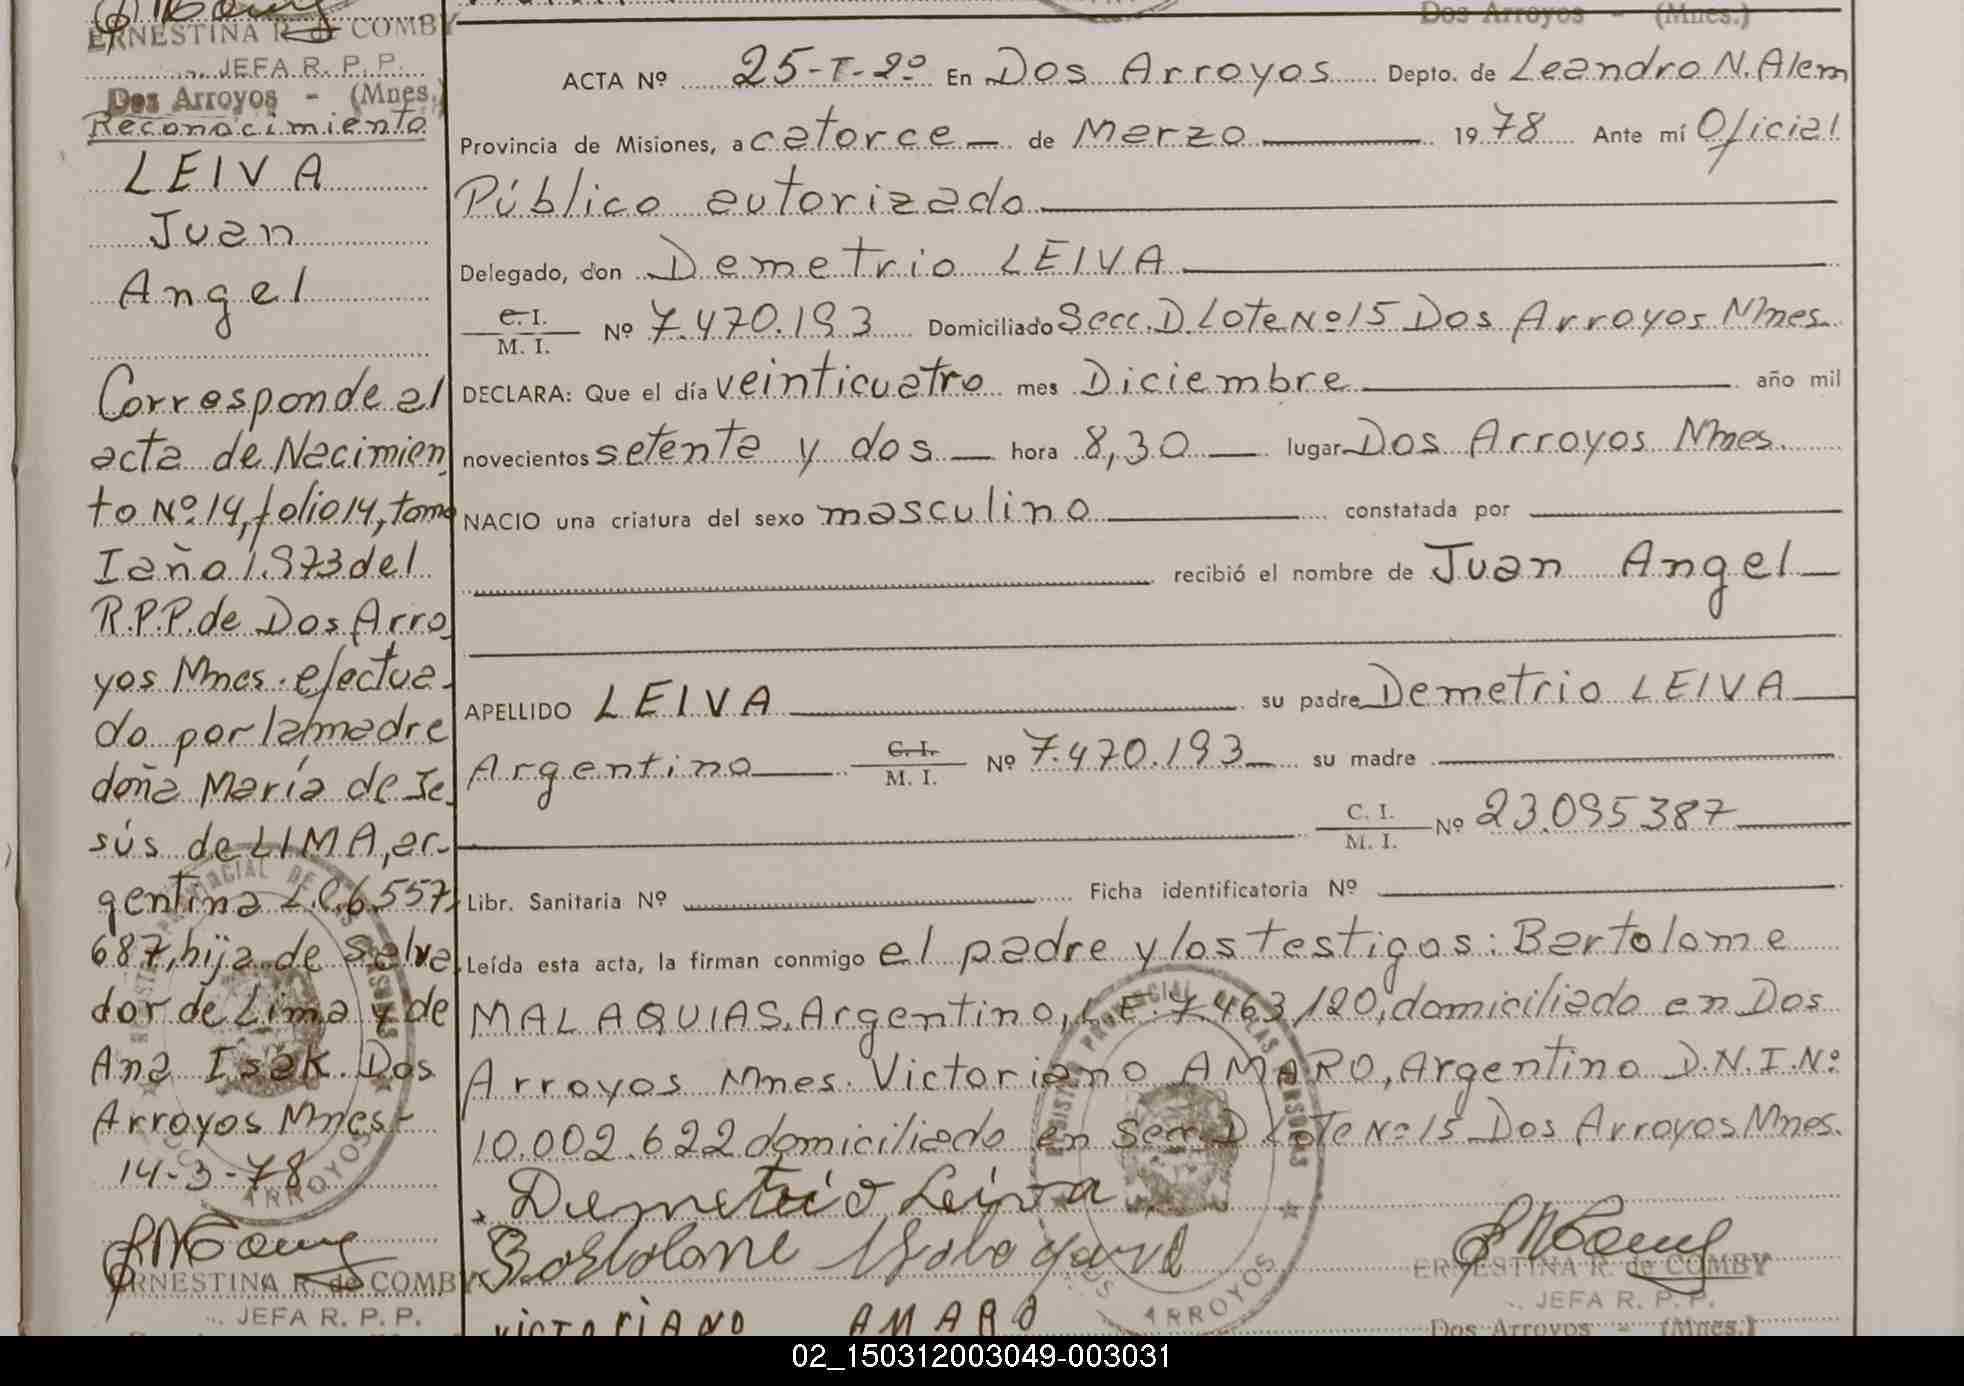 ERNESTINA R. de COMBY
JEFA R. P. P.
Dos Arroyos - (Mnes.)
Reconocimiento
LEIVA
Juan
Angel
Corresponde al
acta de Nacimien
to Nº 14, folio 14, tomo
I año 1.973 del
R.P.P. de Dos Arro
yos Mnes. efectua-
do por la madre
doña María de Je-
sús de LIMA, ar-
gentina L.C. 6.557.
687, hija de Salva
dor de Lima y de
Ana Isak. Dos
Arroyos Mnes-
14-3-78
ERNESTINA R. de COMBY
JEFA R. P. P.
Dos Arroyos - (Mnes.)
ACTA Nº 25-T-2º En Dos Arroyos Depto. de Leandro N. Alem
Provincia de Misiones, a catorce de Marzo 1978 Ante mí Oficial
Público autorizado
Delegado, don Demetrio LEIVA
C. I.
M. I. Nº 7.470.193 Domiciliado Secc. D Lote Nº 15 Dos Arroyos Mnes.
DECLARA: Que el día veinticuatro mes Diciembre año mil
novecientos setenta y dos hora 8,30 lugar Dos Arroyos Mnes.
NACIO una criatura del sexo masculino constatada por
recibió el nombre de Juan Angel
APELLIDO LEIVA su padre Demetrio LEIVA
Argentino C. I. M. I. Nº 7.470.193 su madre
C. I. M. I. Nº 23.095387
Libr. Sanitaria Nº Ficha identificatoria Nº
Leída esta acta, la firman conmigo el padre y los testigos: Bartolome
MALAQUIAS, Argentino, L.E. 7.463,120, domiciliado en Dos
Arroyos Mnes. Victoriano AMARO, Argentino D.N.I.Nº
10.002.622 domiciliado en Secc. D Lote Nº 15 Dos Arroyos Mnes.
Demetrio Leiva
VICTORIANO AMARO
ERNESTINA R. de COMBY
JEFA R. P. P.
Dos Arroyos - (Mnes.)
02_150312003049-003031